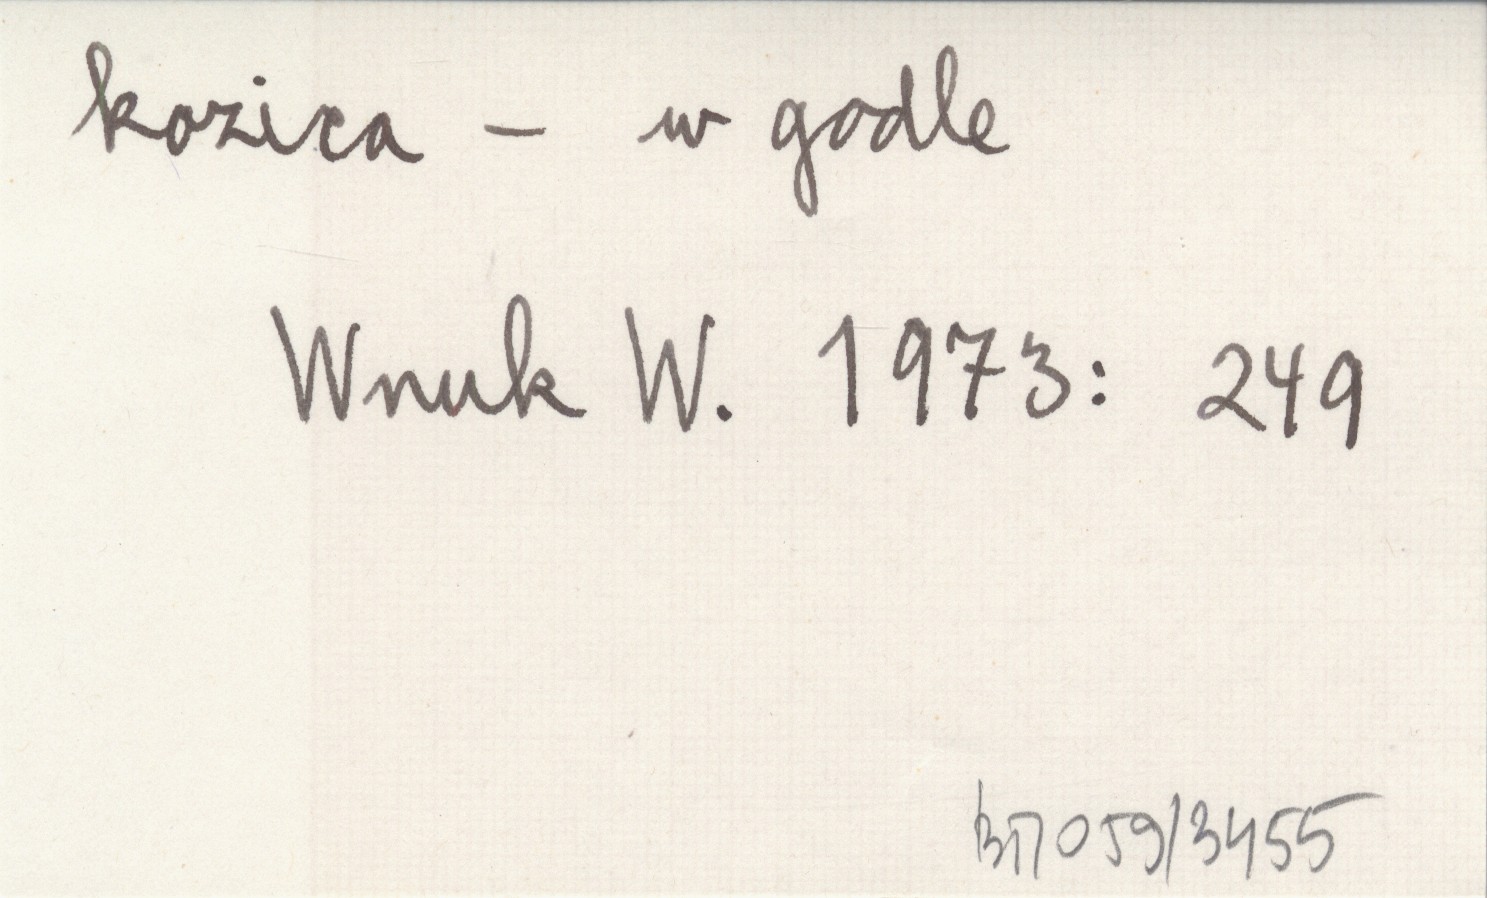 kozica – w godle
Wnuk W. 1973: 249
059/3455